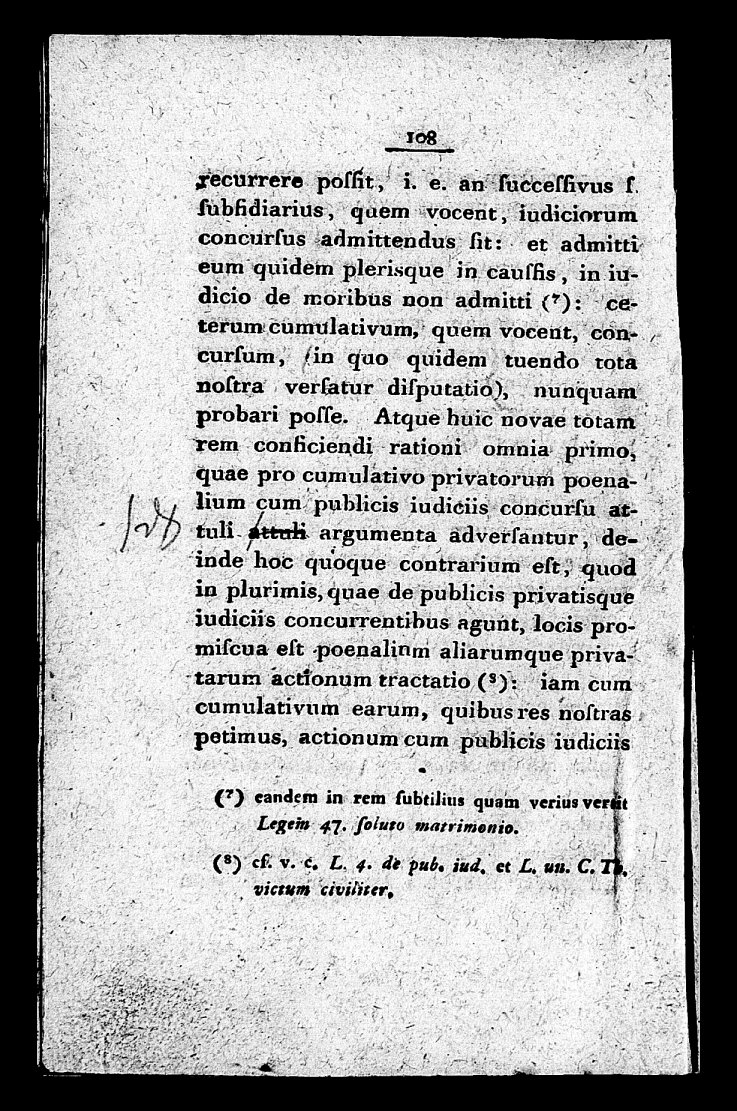 108
recurrere poſſit, i. e. an ſucceſſivus ſ.
ſubſidiarius, quem vocent, iudiciorum
concurſus admittendus ſit: et admitti
eum quidem plerisque in cauſſis, in iu-
dicio de moribus non admitti (⁷): ce-
terum cumulativum, quem vocent, con-
curſum, (in quo quidem tuendo tota
noſtra verſatur diſputatio), nunquam
probari poſſe. Atque huic novae totam
rem conficiendi rationi omnia primo,
quae pro cumulativo privatorum poena-
lium cum publicis iudiciis concurſu at-
tuli attuli argumenta adverſantur, de-
inde hoc quoque contrarium eſt, quod
in plurimis, quae de publicis privatisque
iudiciis concurrentibus agunt, locis pro-
miſcua eſt poenalinm aliarumque priva-
tarum actionum tractatio (⁸): iam cum
cumulativum earum, quibus res noſtras
petimus, actionum cum publicis iudiciis
(⁷) eandem in rem ſubtilius quam verius vertit
Legem 47. ſoluto matrimonio.
(⁸) cf. v. c. L. 4. de pub. iud. et L. un. C. Th.
victum civiliter.